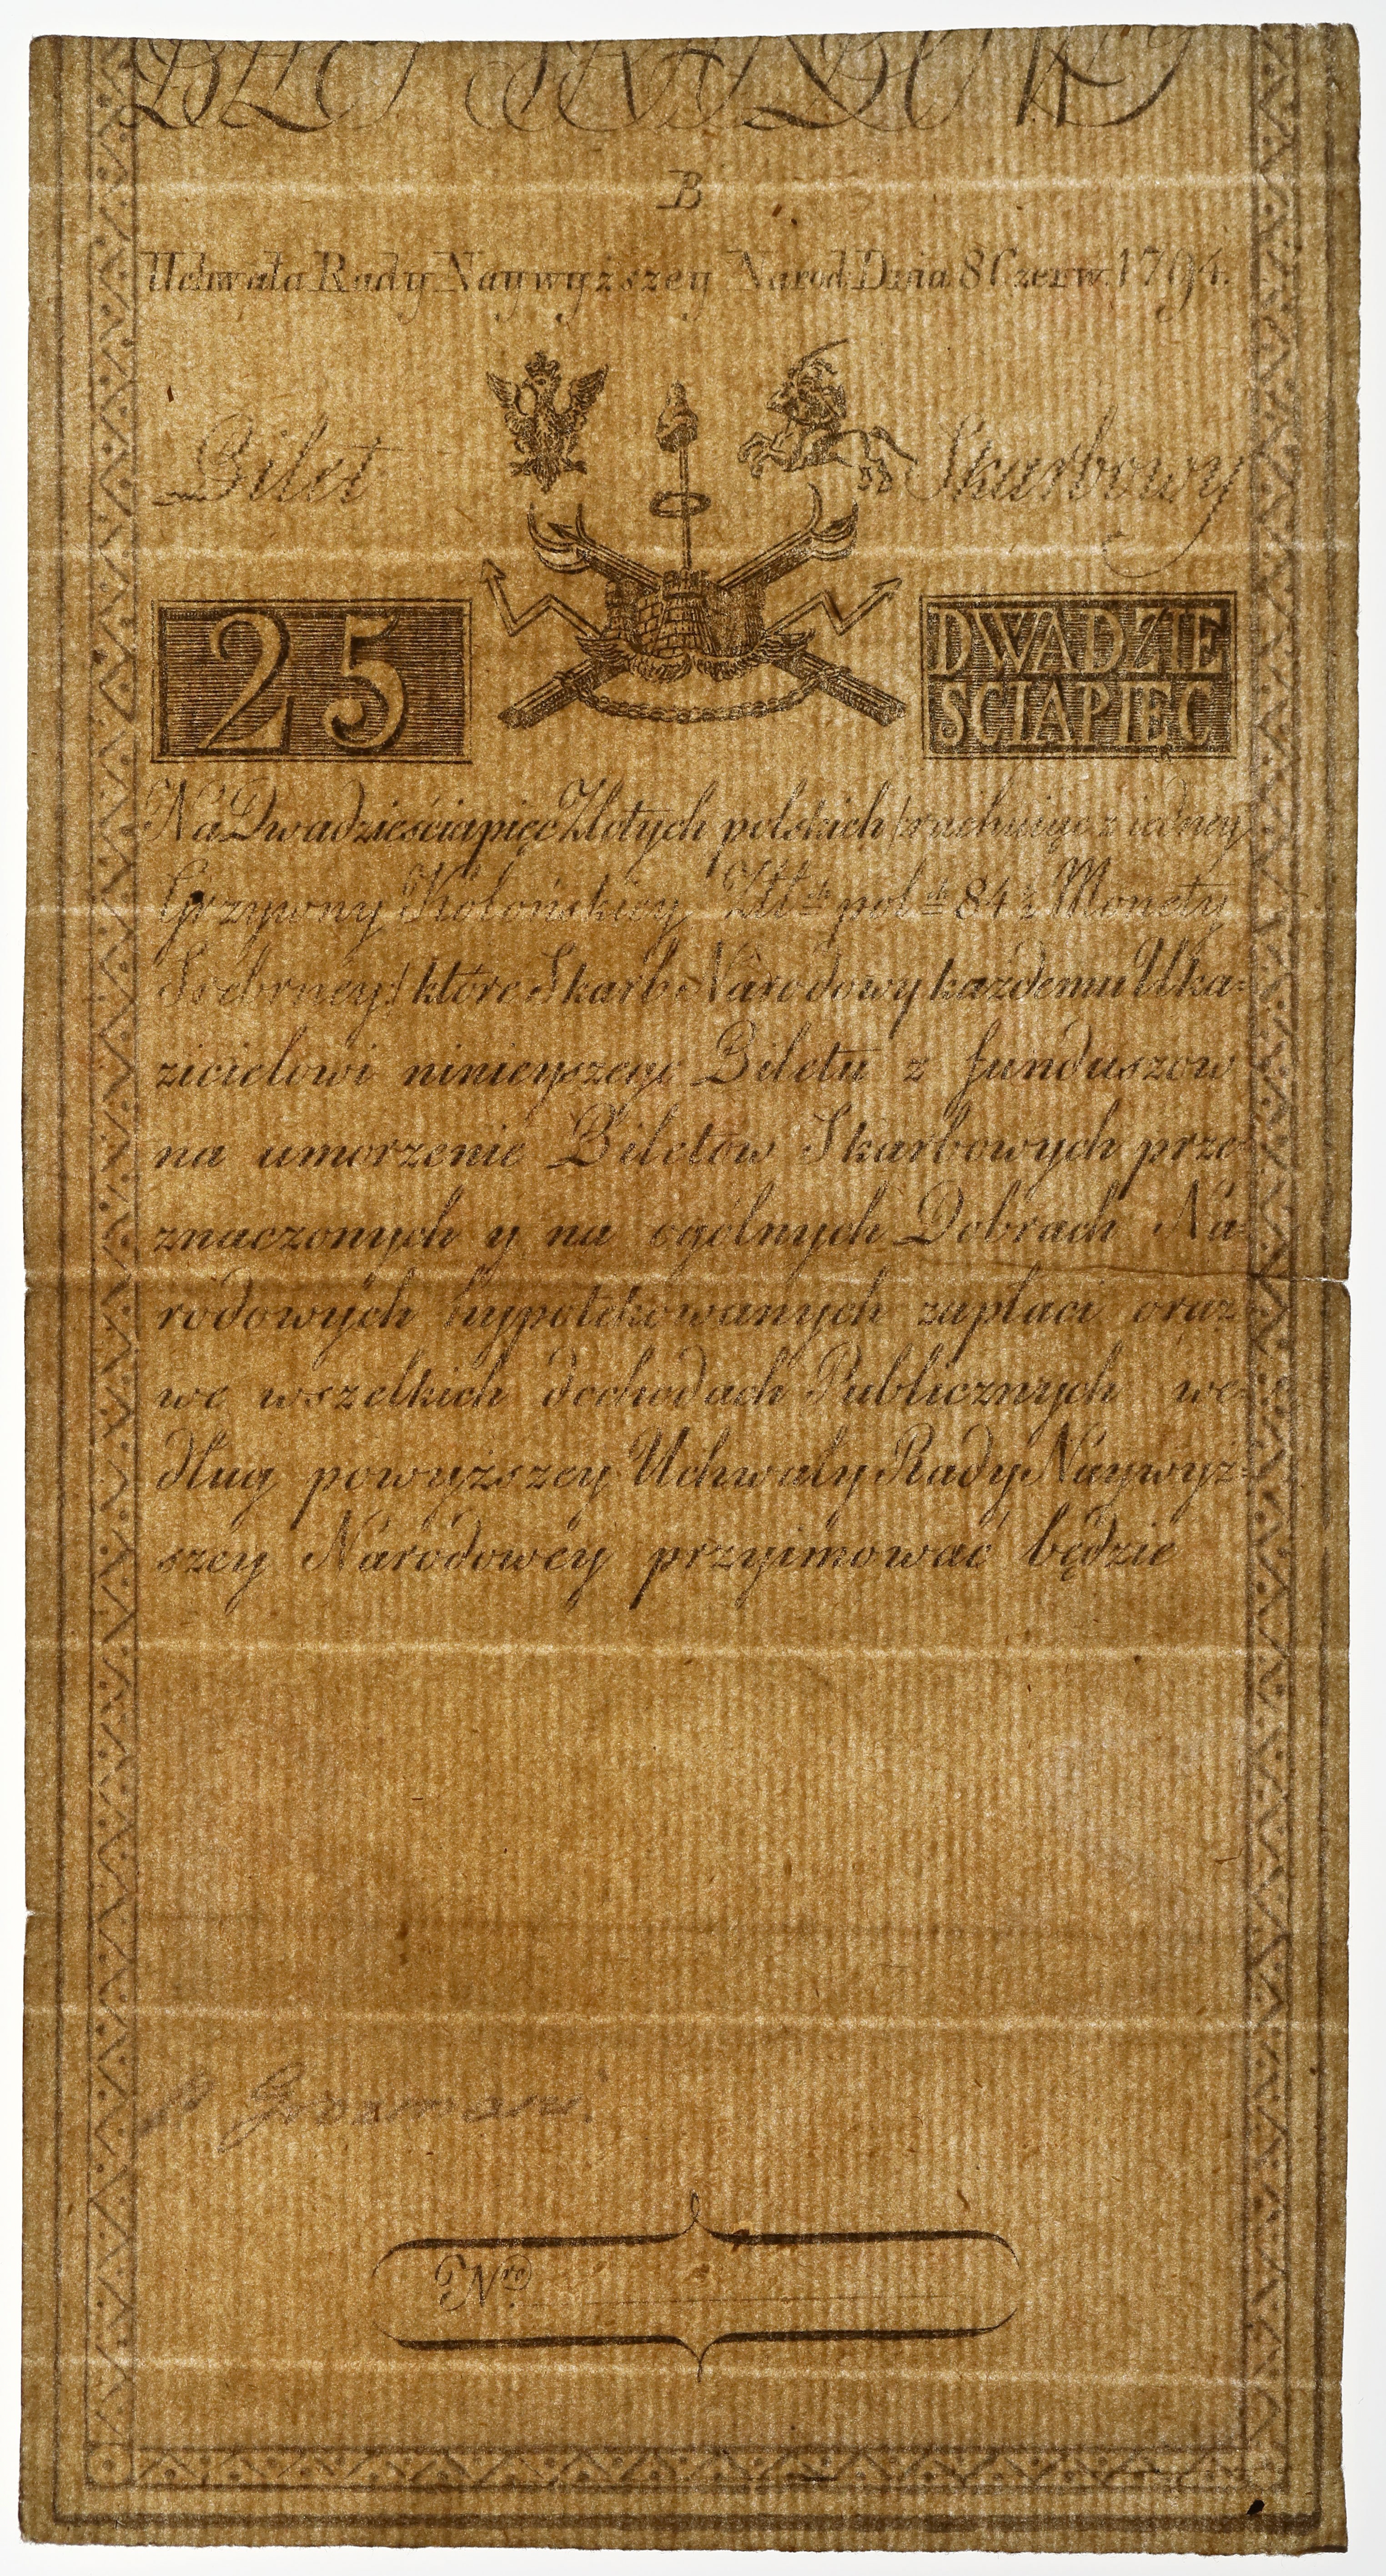 BILET SKARBOWY
B
Uchwała Rady Naywyższey Narod: Dnia 8 Czerw: 1794.
Bilet Skarbowy
25
DWADZIE
SCIAPIĘC
Na Dwadzieściapięć Złotych polskich /rachuiąc z iedney
Grzywny Kolońskiey Złłch pol:ch 84½ Monety
Srebrney/ które Skarb Narodowy każdemu Uka=
zicielowi ninieyszego Biletu z funduszow
na umorzenie Biletów Skarbowych prze=
znaczonych y na ogólnych Dobrach Na=
rodowych hypotekowanych zapłaci oraz
we wszelkich dochodach Publicznych we=
dług powyższey Uchwały Rady Naywyż=
szey Narodowey przyimować będzie
Nro